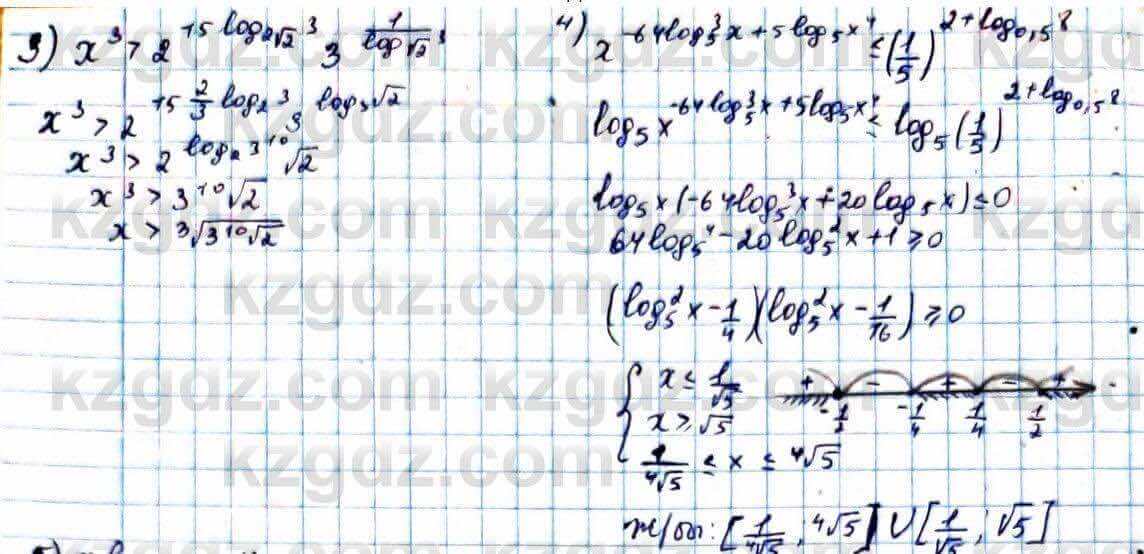 3) x³ > 2^(15 log_(2√2) 3) 3^(1/log_(√2) 3)
x³ > 2^(15 2/3 log_2 3) 3^(log_3 √2)
x³ > 2^(log_2 3^10) √2
x³ > 3^10 √2
x > ³√(3^10 √2)
4) x^(-64 log_5^3 x + 5 log_5 x^4) ≤ (1/5)^(2 + log_0,5 8)
log_5 x^(-64 log_5^3 x + 5 log_5 x^4) ≤ log_5 (1/5)^(2 + log_0,5 8)
log_5 x (-64 log_5^3 x + 20 log_5 x) ≤ 0
64 log_5^4 - 20 log_5^2 x + 1 ≥ 0
(log_5^2 x - 1/4)(log_5^2 x - 1/16) ≥ 0
{ x ≤ 1/√5
x ≥ √5
1/⁴√5 ≤ x ≤ ⁴√5
+ - + - +
-1/2 -1/4 1/4 1/2
ж/бы: [1/⁴√5 ; ⁴√5] U [1/√5 ; √5]
kzgdz.com